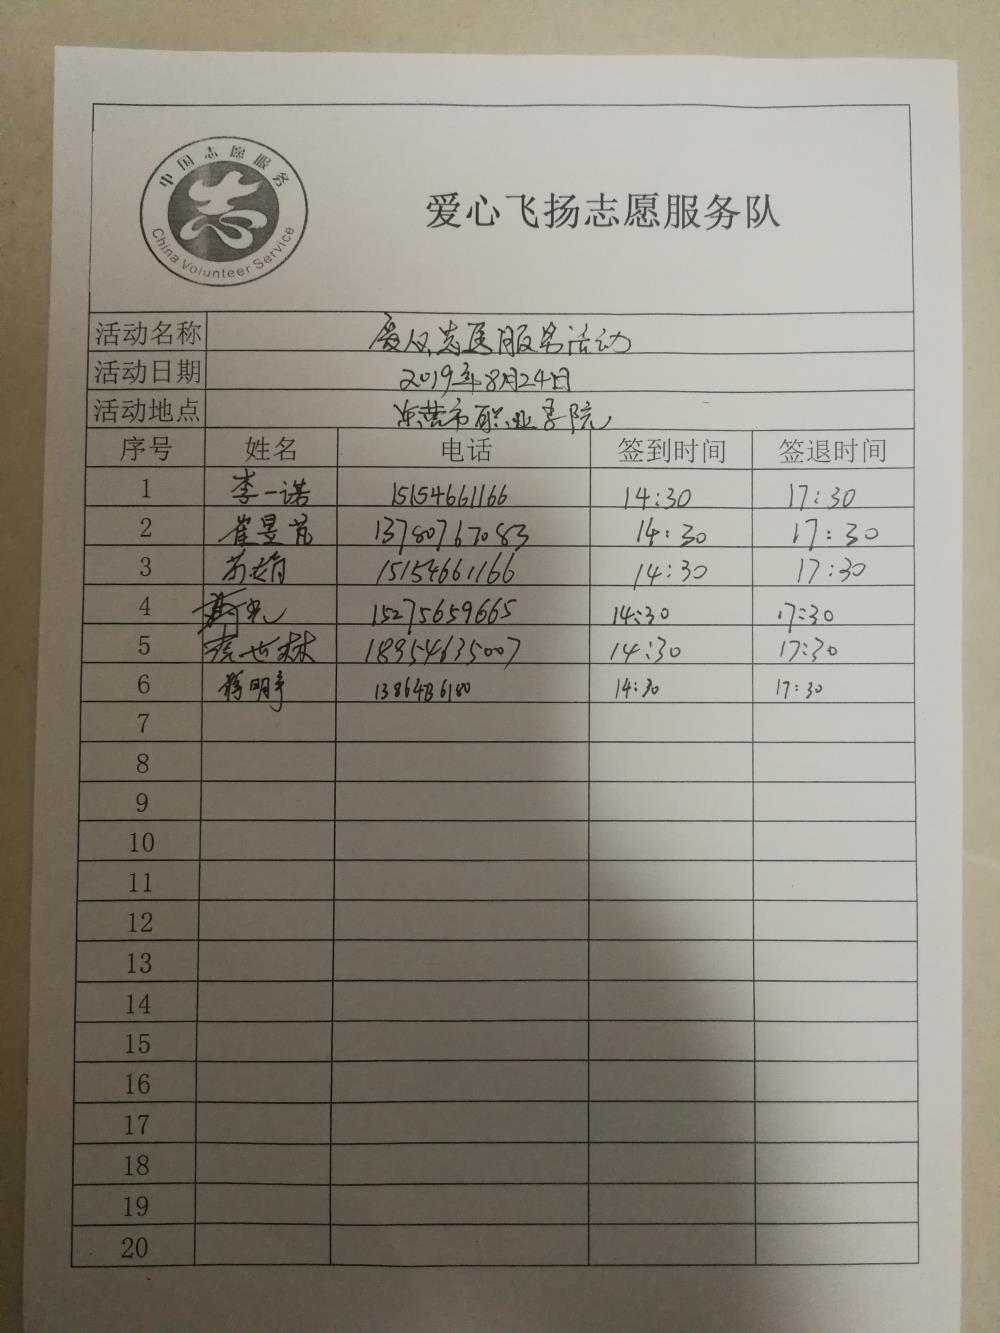 中国志愿服务
志
China Volunteer Service
爱心飞扬志愿服务队
活动名称 志愿服务活动
活动日期 2019年8月24日
活动地点 东营市职业学院
序号 姓名 电话 签到时间 签退时间
1 李一诺 15154661166 14:30 17:30
2 崔昱 13780767083 14:30 17:30
3 15154661166 14:30 17:30
4 15275659665 14:30 17:30
5 世林 18954635007 14:30 17:30
6 明 14:30 17:30
7
8
9
10
11
12
13
14
15
16
17
18
19
20